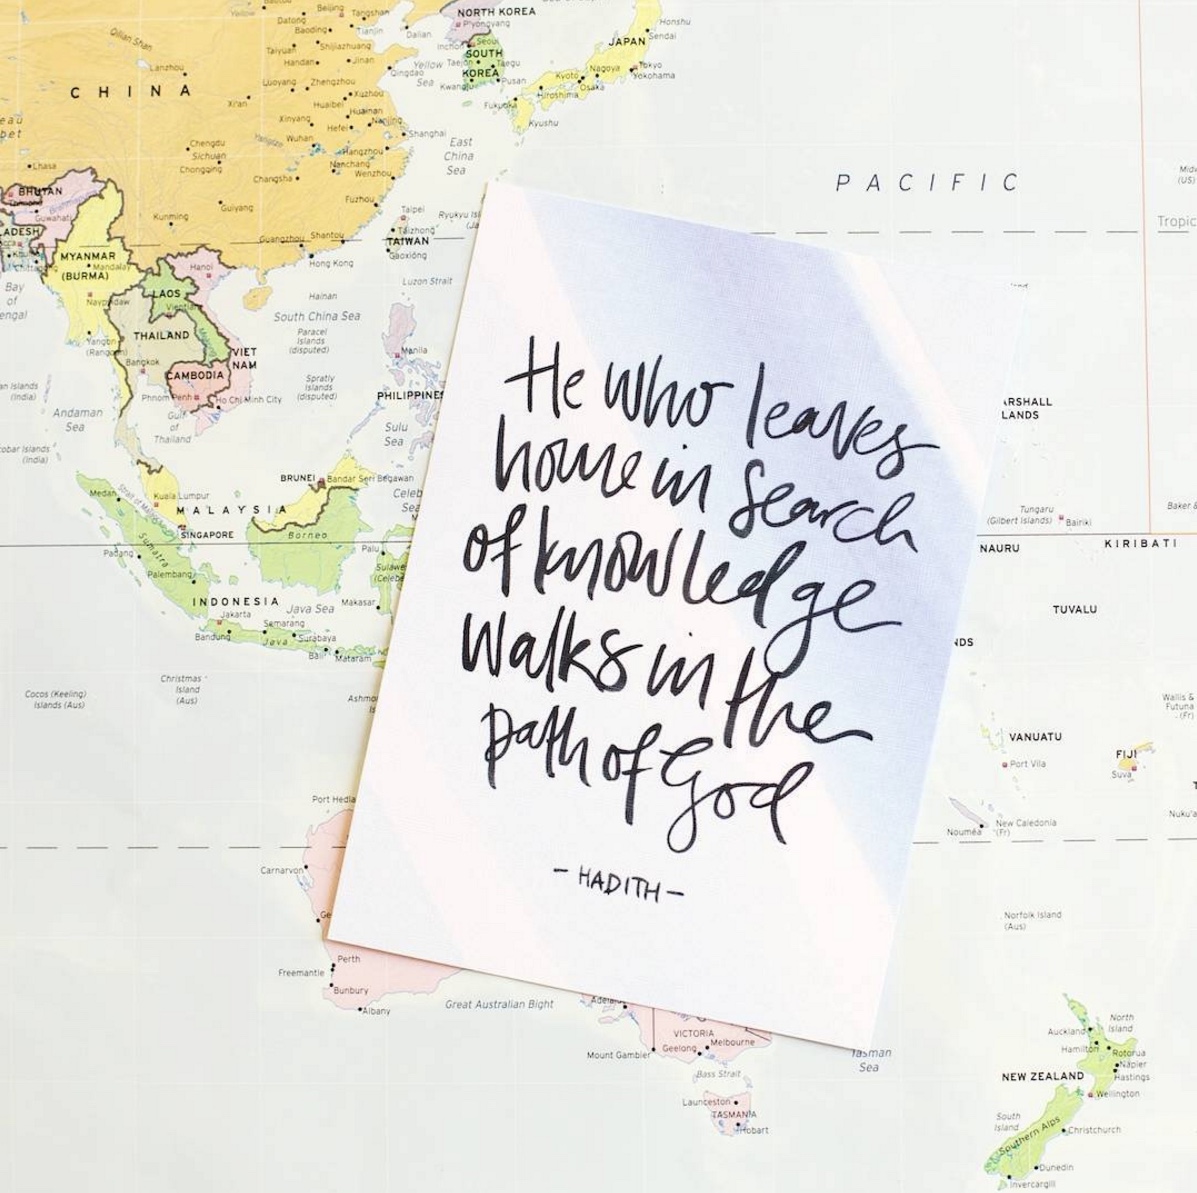 He who leaves
home in search
of knowledge
walks in the
path of God
- HADITH -
CHINA
Qilian Shan
Lanzhou
Xi'an
Datong
Beijing
Tangshan
Baoding
Tianjin
Dalian
Taiyuan
Shijiazhuang
Handan
Jinan
Qingdao
Luoyang
Zhengzhou
Xuzhou
Huaibei
Huainan
Xinyang
Nanjing
Hefei
Shanghai
Wuhan
Hangzhou
Yangtze
Chengdu
Sichuan
Chongqing
Nanchang
Wenzhou
Changsha
Lhasa
Guiyang
Fuzhou
Kunming
Guangzhou
Shantou
Hong Kong
NORTH KOREA
P'yongyang
Inchon
Seoul
SOUTH
KOREA
Taejon
Taegu
Kwangju
Pusan
Yellow
Sea
JAPAN
Honshu
Sendai
Tokyo
Yokohama
Nagoya
Kyoto
Osaka
Hiroshima
Fukuoka
Kyushu
East
China
Sea
PACIFIC
Tropic
Taipei
Taizhong
TAIWAN
Gaoxiong
Luzon Strait
BHUTAN
Guwahati
Brahmaputra
MYANMAR
(BURMA)
Mandalay
Naypyidaw
Yangon
(Rangoon)
Bay
of
LAOS
Hanoi
THAILAND
Bangkok
VIET
NAM
CAMBODIA
Phnom Penh
Ho Chi Minh City
Gulf
of
Thailand
Andaman
Sea
Hainan
South China Sea
Paracel
Islands
(disputed)
Spratly
Islands
(disputed)
Manila
PHILIPPINES
Sulu
Sea
BRUNEI
Bandar Seri Begawan
Medan
Strait of Malacca
Kuala Lumpur
MALAYSIA
SINGAPORE
Borneo
Sumatra
Padang
Palembang
Palu
Makasar
INDONESIA
Jakarta
Java Sea
Semarang
Bandung
Java
Surabaya
Bali
Mataram
Christmas
Island
(Aus)
Cocos (Keeling)
Islands (Aus)
Tungaru
(Gilbert Islands)
Bairiki
NAURU
KIRIBATI
TUVALU
VANUATU
Port Vila
FIJI
Suva
New Caledonia
(Fr)
Nouméa
Norfolk Island
(Aus)
Carnarvon
Perth
Freemantle
Bunbury
Albany
Great Australian Bight
VICTORIA
Geelong
Melbourne
Mount Gambier
Bass Strait
Launceston
TASMANIA
Hobart
Tasman
Sea
North
Island
Auckland
Hamilton
Rotorua
Napier
Hastings
NEW ZEALAND
Wellington
South
Island
Southern Alps
Christchurch
Dunedin
Invercargill